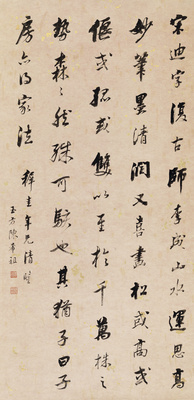 宋迪字復古師李成山水運思高
妙筆墨清潤又喜畫松或高或
偃或孤或雙以至於千萬株之
勢森森然殊可駭也其猶子曰子
房亦得家法 年兄清
玉方陳希祖